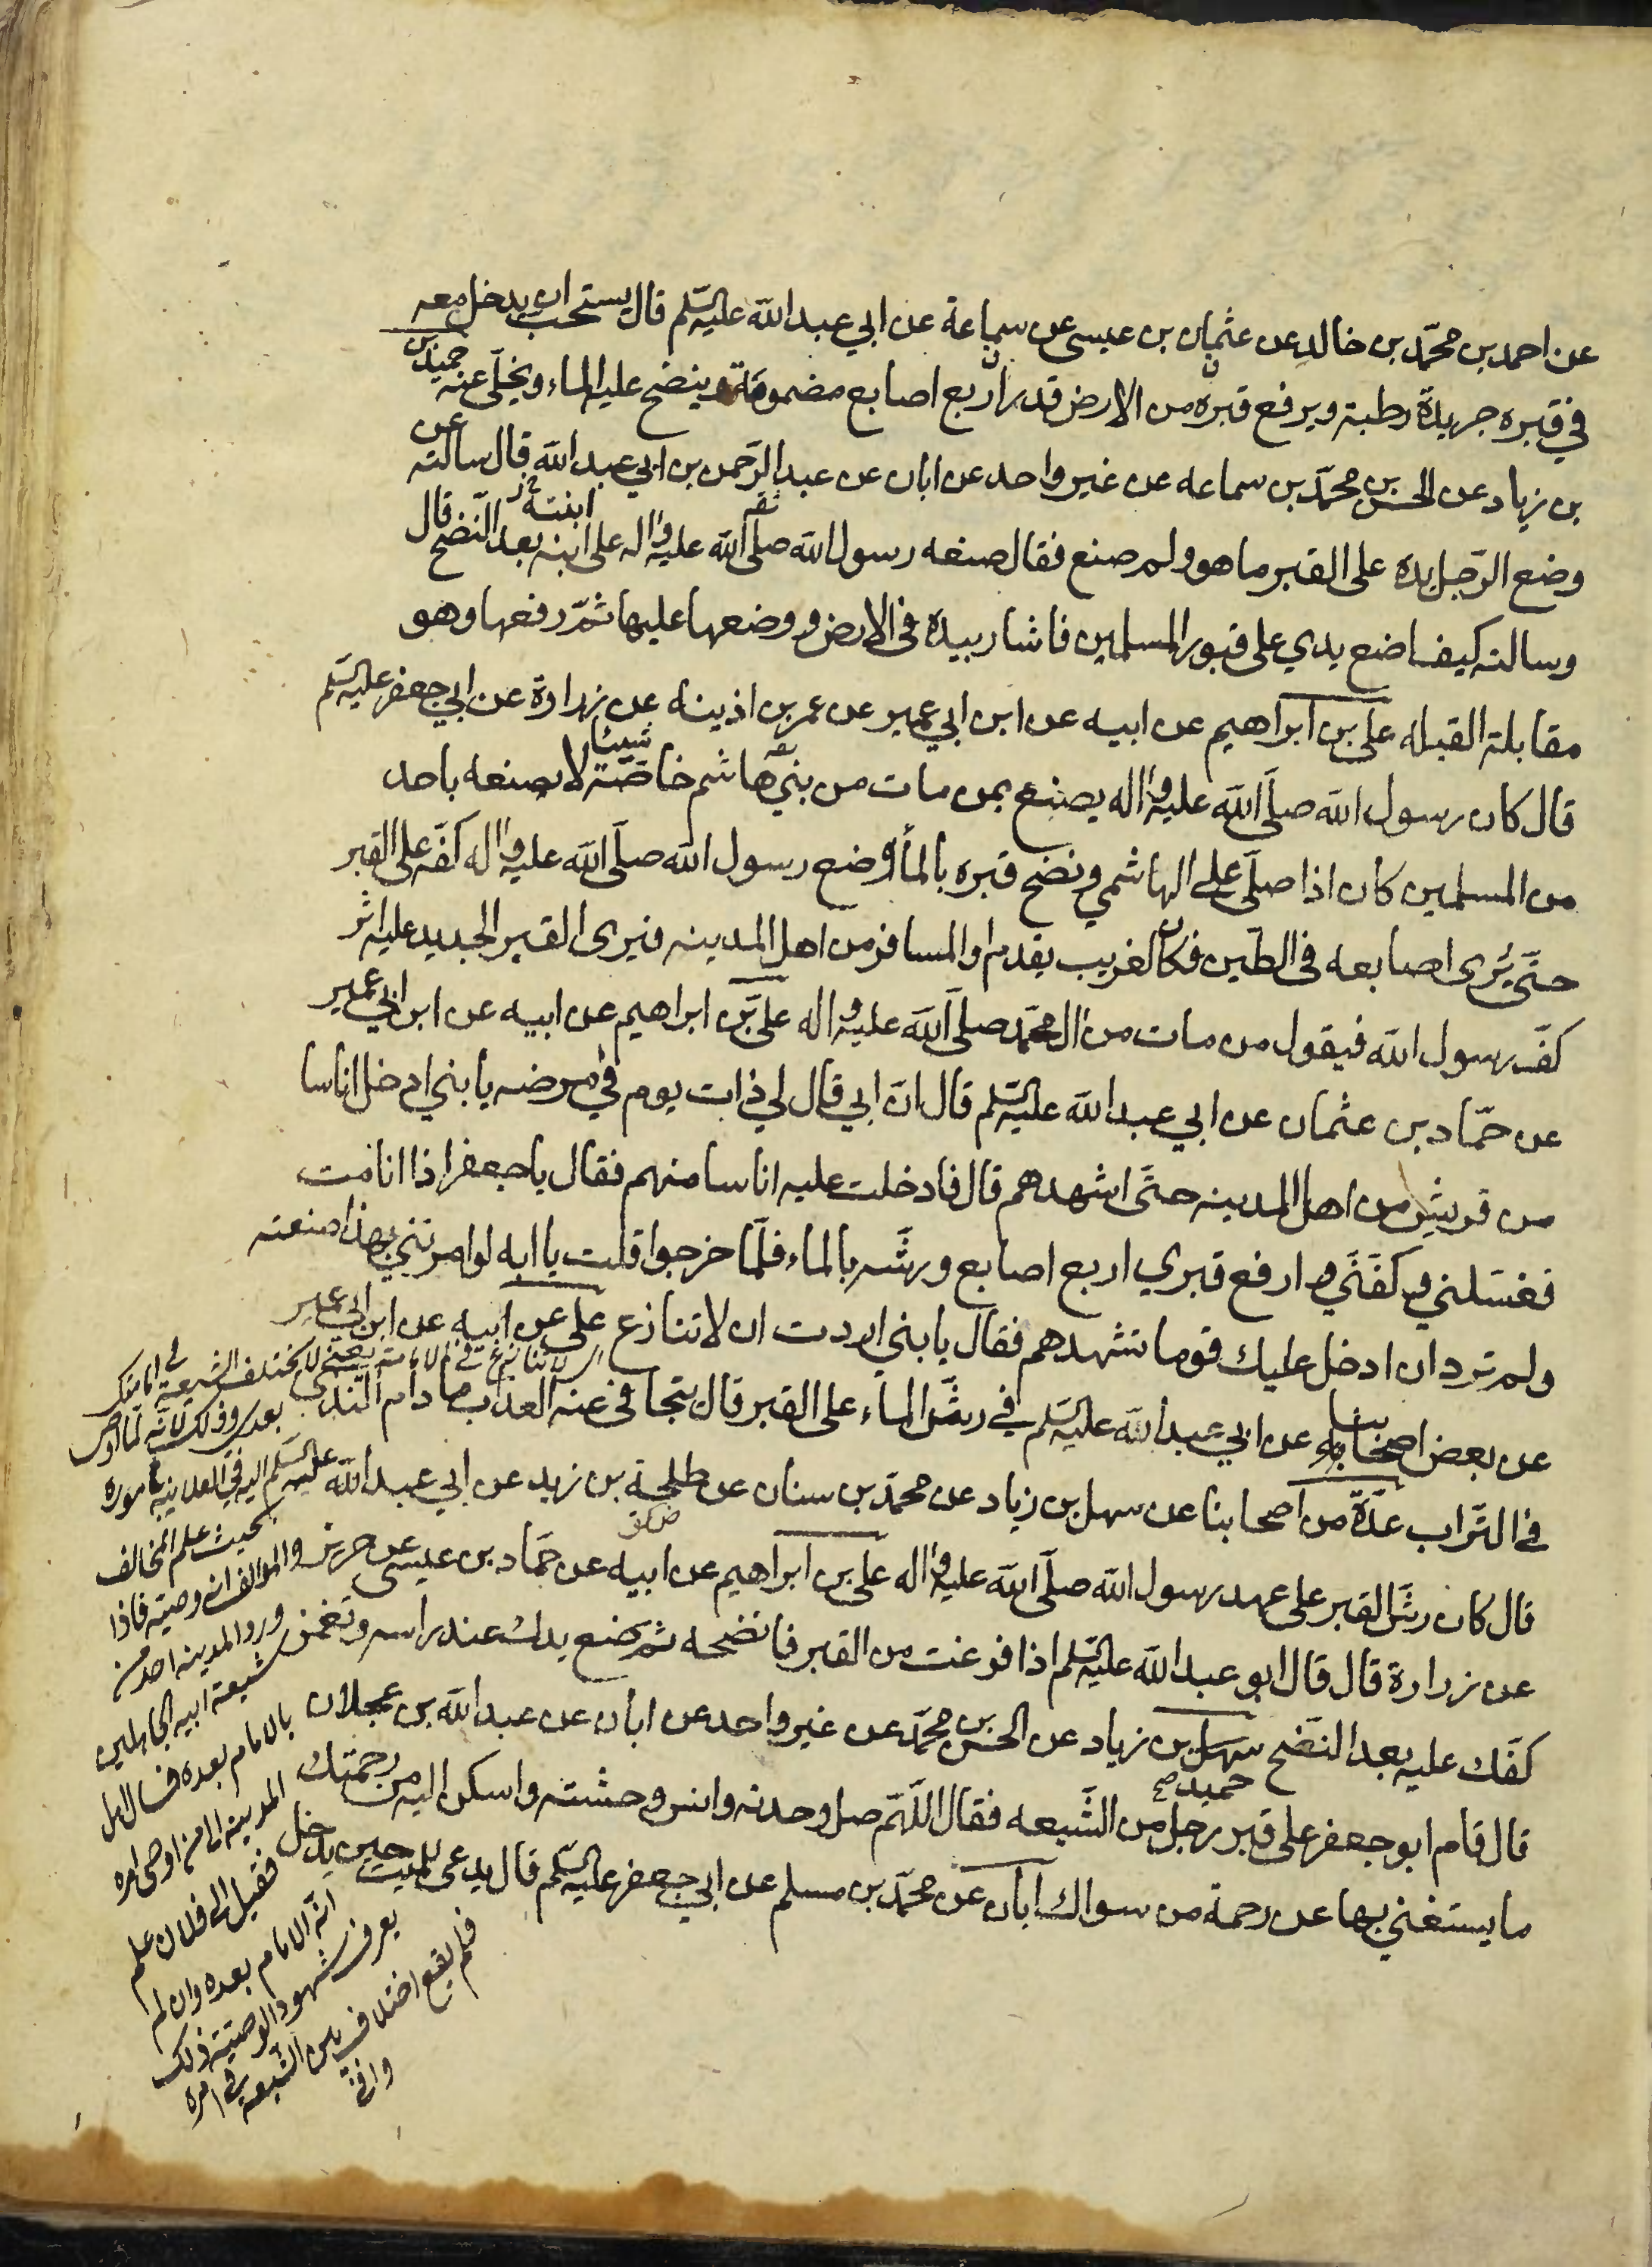 عن احمد بن محمّد بن خالد عن عثمان بن عيسى عن سماعة عن ابي عبد الله عليه السّلم قال يستحب ان يدخل معه
في قبره جريدة رطبة ويرفع قبره من الارض قدر اربع اصابع مضمومة وينضح عليه الماء ويخلّى عنه حميد بن
بن زياد عن الحسن بن محمّد بن سماعه عن غير واحد عن ابان عن عبد الرّحمن بن ابي عبد الله قال سالته عن
وضع الرّجل يده على القبر ما هو ولم صنع فقال صنعه رسول الله صلّى الله عليه واله على ابنه بعد النّضح قال
ابنته
وسالته كيف اضع يدي على قبور المسلمين فاشار بيده فى الارض ووضعها عليها ثمّ رفعها وهو
مقابلة القبله على بن ابراهيم عن ابيه عن ابن ابي عمير عن عمر بن اذينه عن زرارة عن ابي جعفر عليه السّلم
قال كان رسول الله صلّى الله عليه واله يصنع بمن مات من بني هاشم خاصّة شيئا لا يصنعه باحد
من المسلمين كان اذا صلّى على الهاشمي ونضح قبره بالماء وضع رسول الله صلّى الله عليه واله كفّه على القبر
حتّى يُرى اصابعه فى الطّين فكان الغريب يقدم او المسافر من اهل المدينه فيرى القبر الجديد عليه اثر
كفّ رسول الله فيقول من مات من ال محمّد صلّى الله عليه واله علي بن ابراهيم عن ابيه عن ابن ابي عمير
عن حمّاد بن عثمان عن ابي عبد الله عليه السّلم قال انّ ابي قال لي ذات يوم في مرضه يا بني ادخل اناسا
من قريش من اهل المدينه حتّى اشهدهم قال فادخلت عليه اناسا منهم فقال يا جعفر اذا انا مت
فغسّلني وكفّنّي وارفع قبري اربع اصابع ورشّه بالماء فلّما خرجوا قلت يا ابه لو امرتني بهذا صنعته
ولم ترد ان ادخل عليك قوما تشهدهم فقال يا بني اردت ان لا تنازع على عن ابيه عن ابن ابي عمير
عن بعض اصحابنا عن ابي عبد الله عليه السّلم في رشّ الماء على القبر قال يتجافى عنه العذاب ما دام الندى
في التّراب عدّة من اصحابنا عن سهل بن زياد عن محمّد بن سنان عن طلحة بن زيد عن ابي عبد الله عليه السّلم
قال كان رشّ القبر على عهد رسول الله صلّى الله عليه واله علي بن ابراهيم عن ابيه عن حمّاد بن عيسى عن حريز
عن زرارة قال قال ابو عبد الله عليه السّلم اذا فرغت من القبر فانضحه ثمّ ضع يدك عند راسه وتغمز
كفّك عليه بعد النّضح سهل بن زياد عن الحسن بن محمّد عن غير واحد عن ابان عن عبد الله بن عجلان
حميد صح
قال قام ابو جعفر على قبر رجل من الشّيعه فقال اللّهمّ صل وحدته وانس وحشته واسكن اليه من رحمتك
ما يستغني بها عن رحمة من سواك ابان عن محمّد بن مسلم عن ابي جعفر عليه السّلم قال يدعى للميّت حين يدخل
اي لا تنازع في الامامة يعني لا يختلف الشيعة في امامتك
بعدي وذلك لانّه لمّا اوصى
اليه في العلانية باموره
بحيث علم المخالف
والموالف ان وصيّه فاذا
ورد المدينه احد من
شيعة ابيه الجاهلين
بالامام بعده فسال اهل
المدينه الى من اوصى امره
فقيل الى فلان علم
انّه الامام بعده وان لم
يعرف شهود الوصيّة ذلك
فلم يقع اختلاف بين الشّيعه في امره
وافي